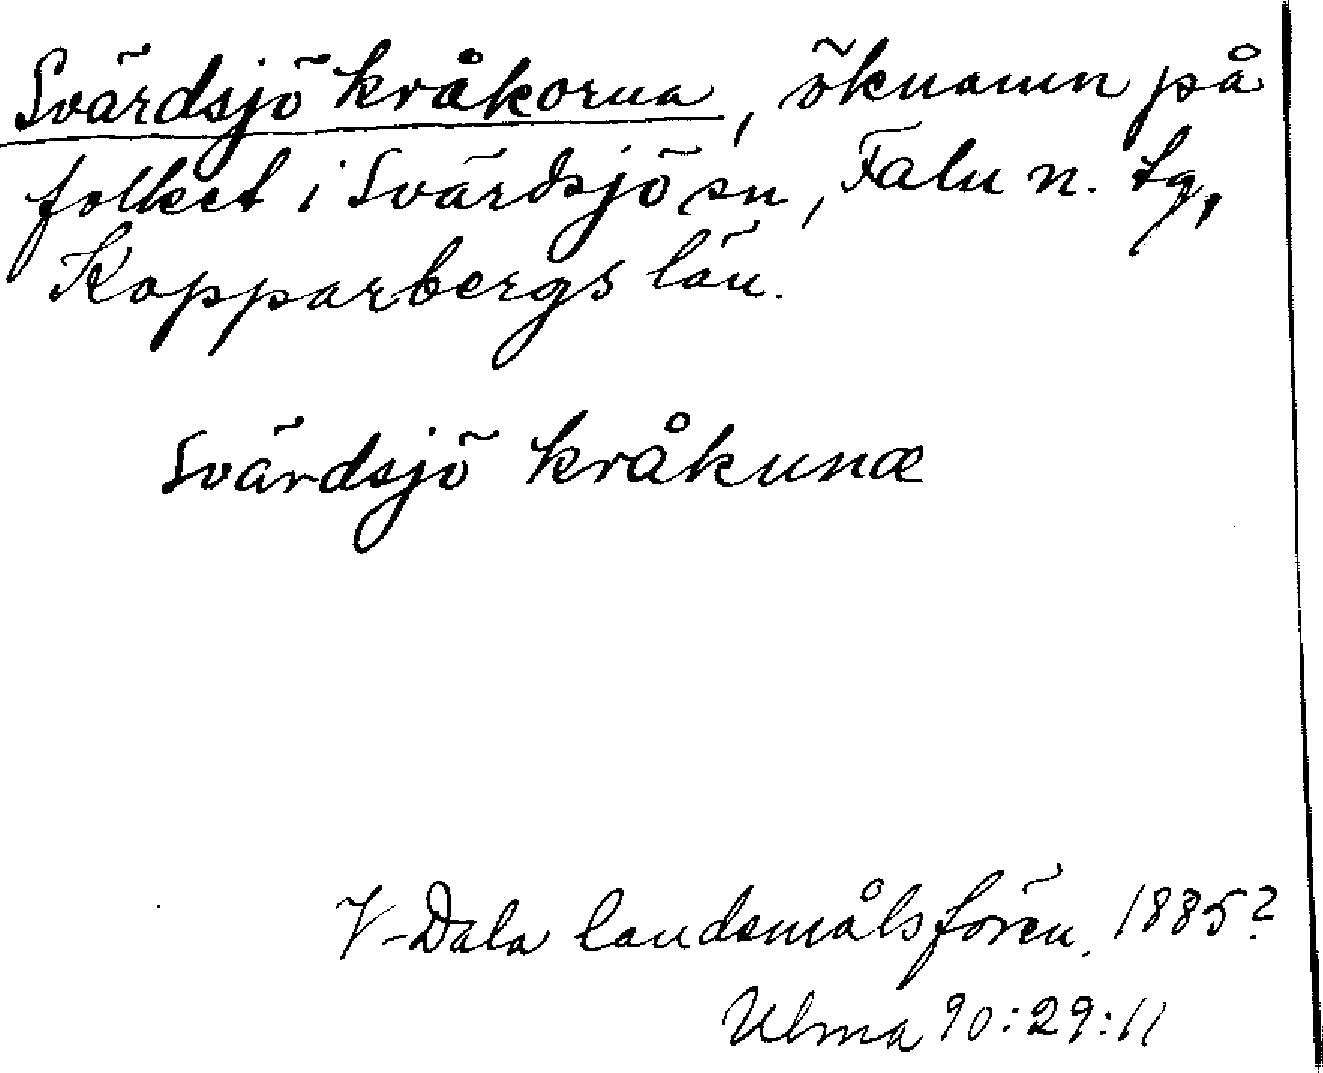 Svärdsjö kråkorna, öknamn på
folket i Svärdsjö sn, Falu n. tg,
Kopparbergs län.
Svärdsjö kråkunæ
V-Dala landsmålsfören. 1885?
Ulma 90:29:11